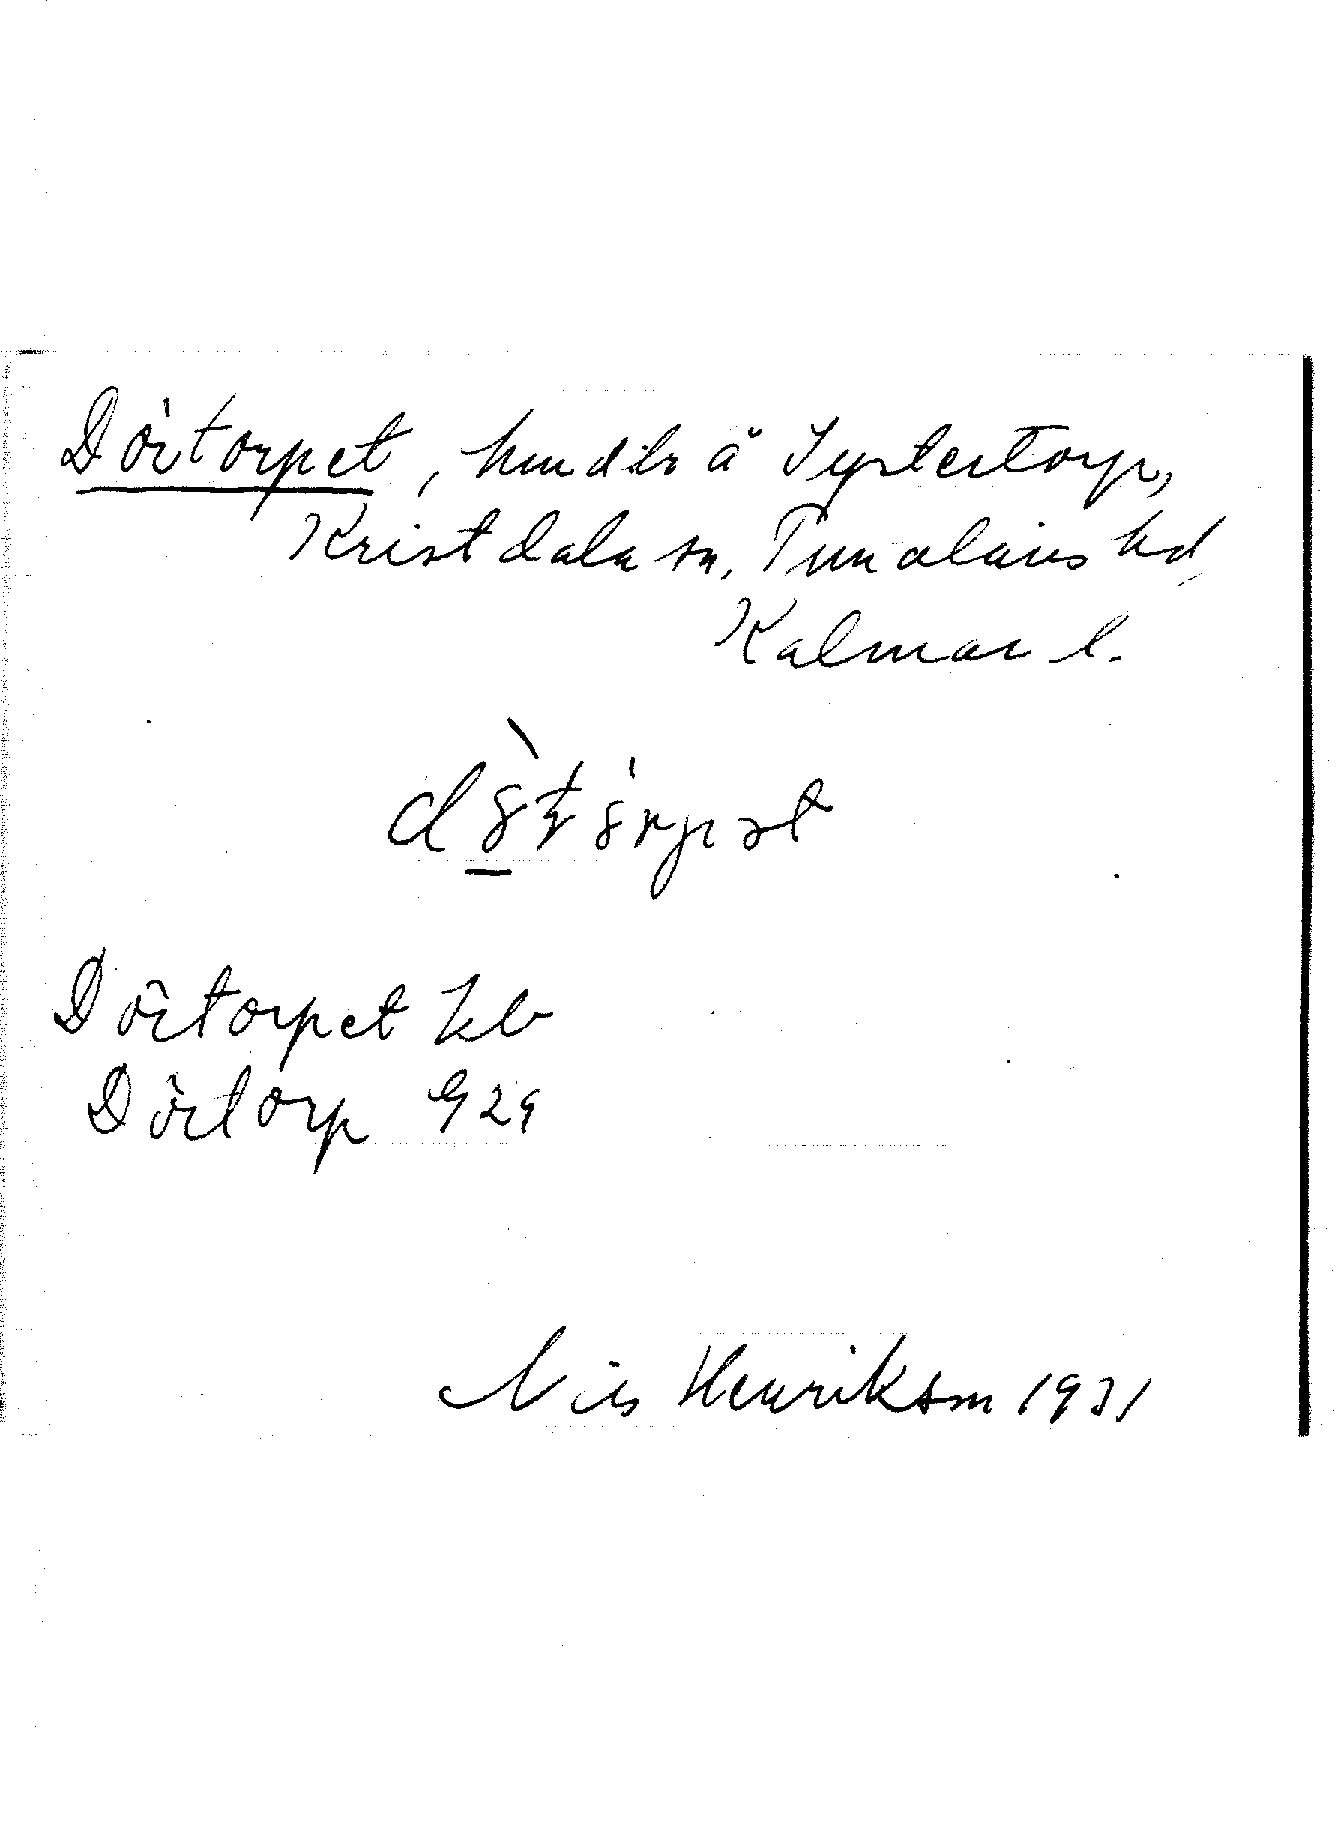 Dörtorpet, hmdlr å Systertorp,
Kristdala sn, Tunaläns hd
Kalmar l.
Dörtorpet kb
Dörtorp G 29
Nils Henrikson 1931